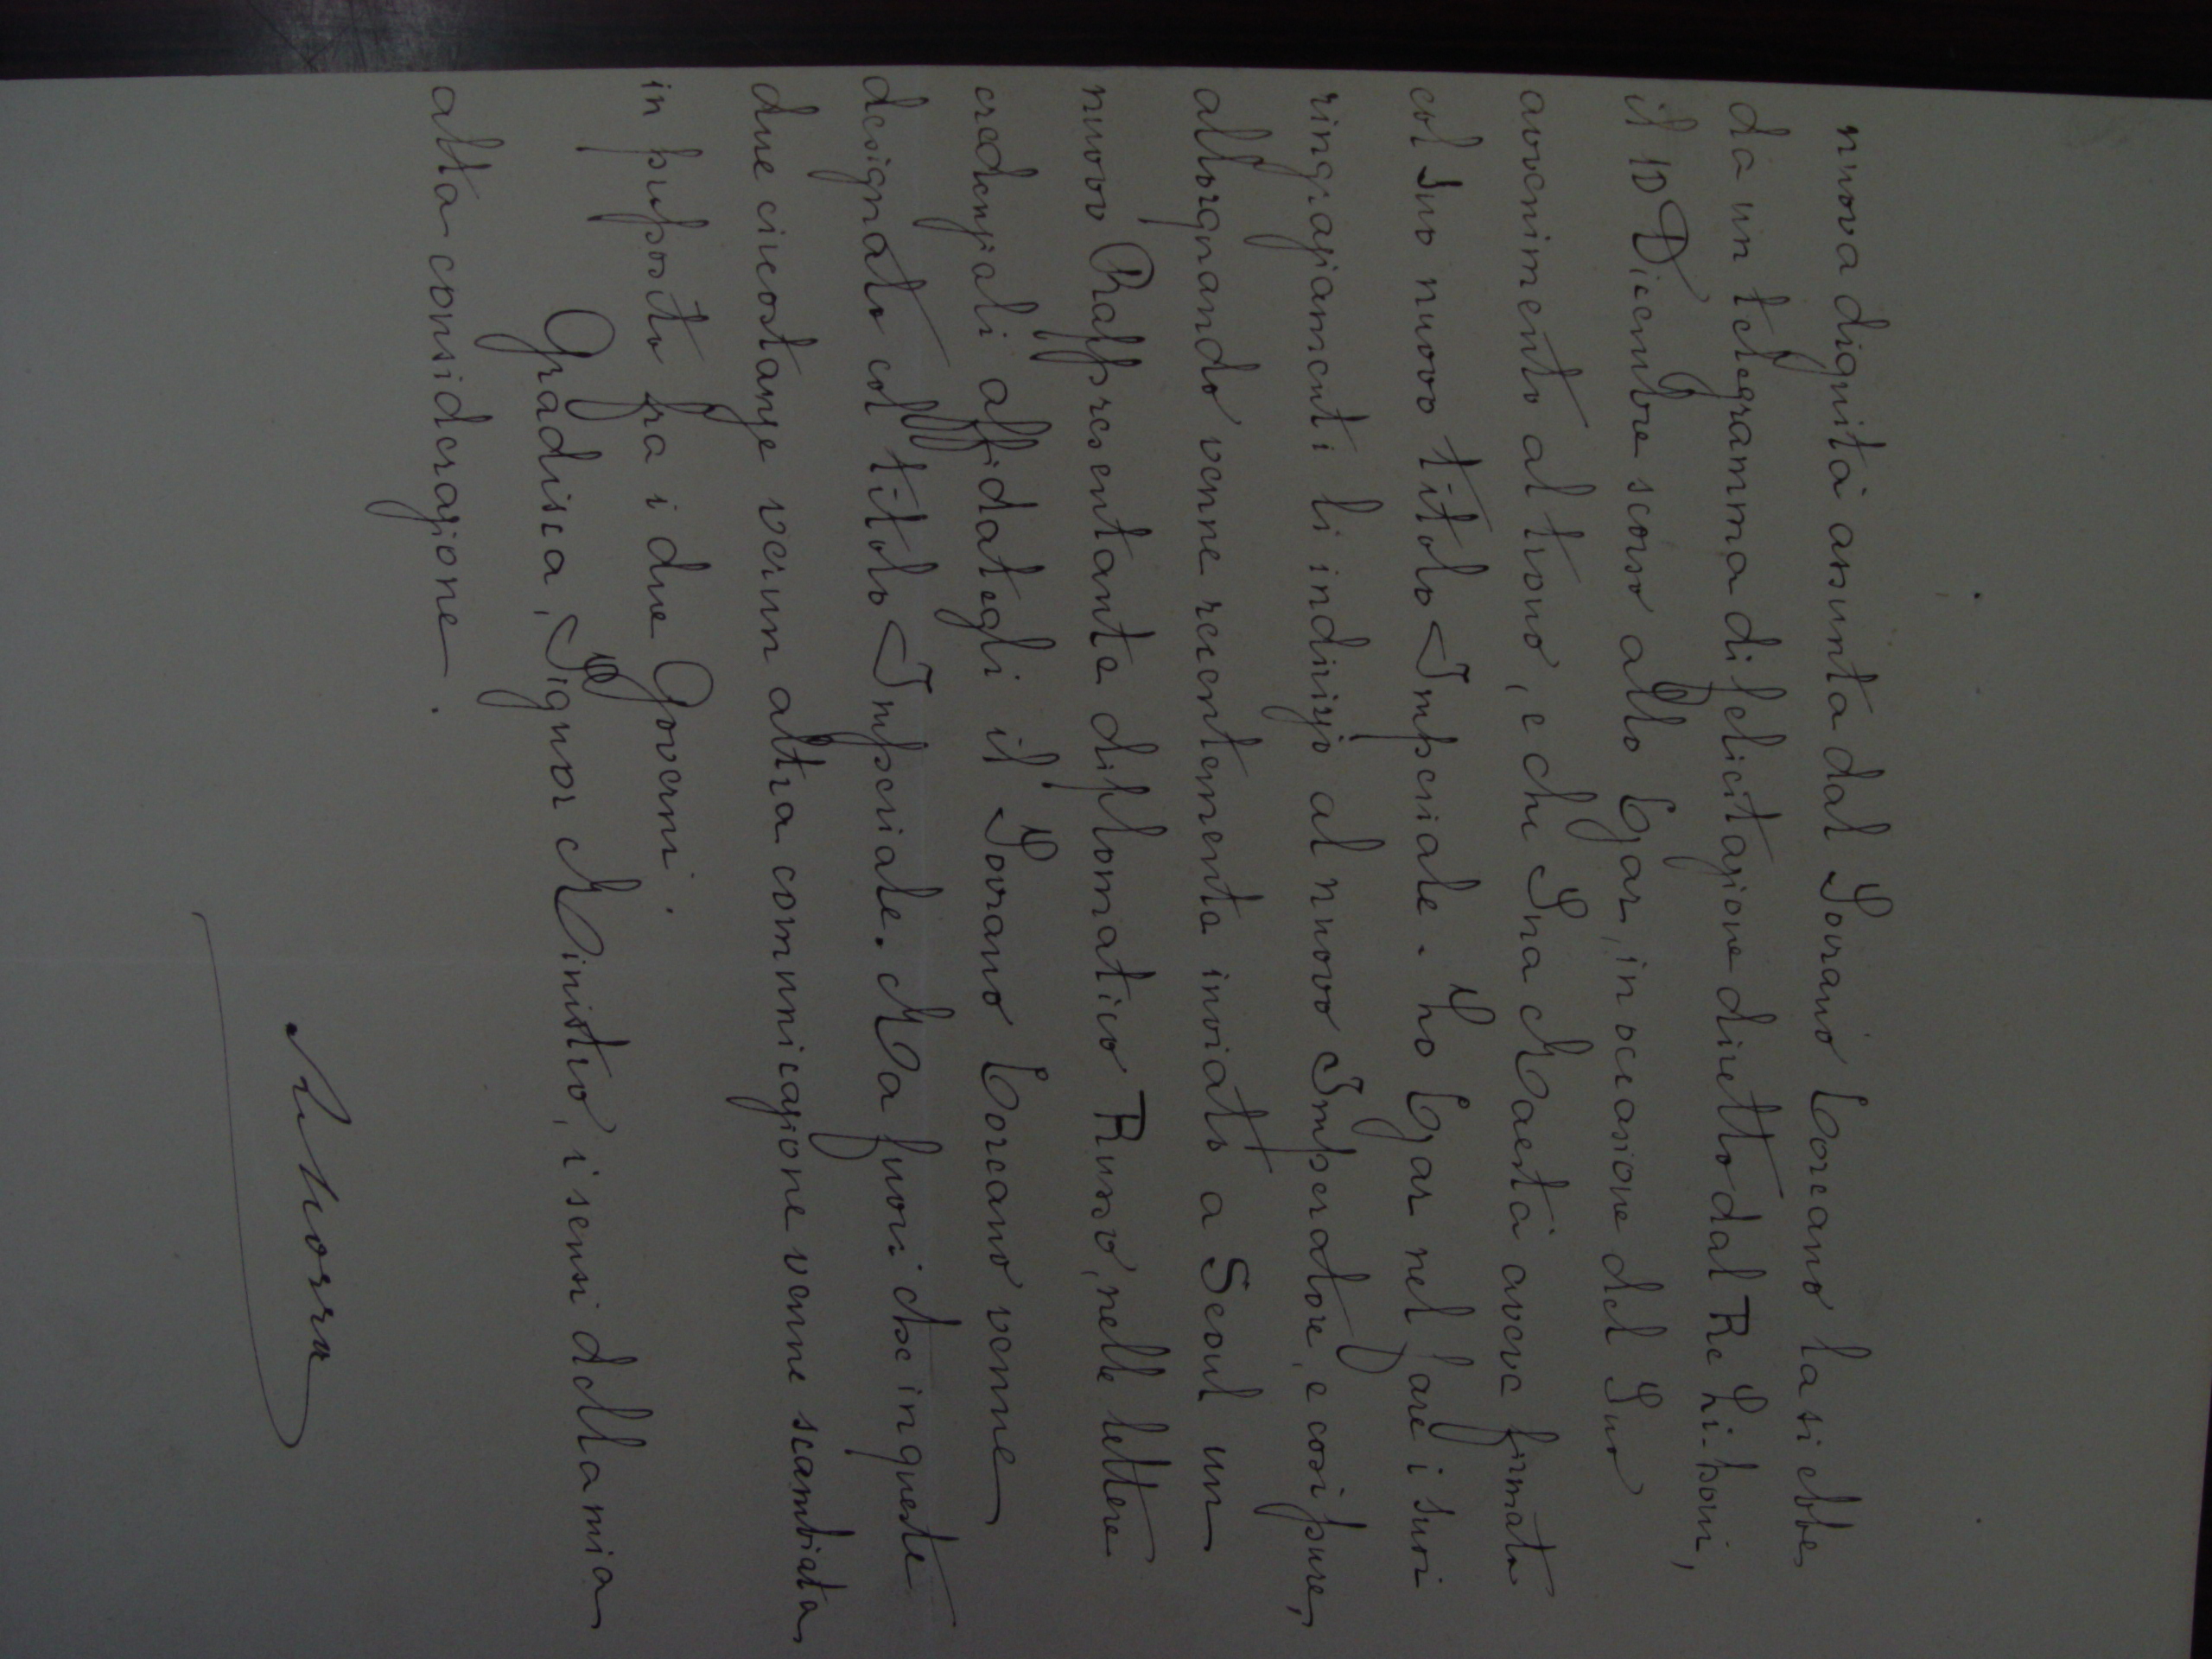 nuova dignità assunta dal Sovrano Coreano la si ebbe
da un telegramma di felicitazione diretto dal Re Li-houi,
il 10 Dicembre scorso allo Czar, in occasione del Suo
avvenimento al trono, e che Sua Maestà aveva firmato
col Suo nuovo titolo Imperiale. Lo Czar nel fare i suoi
ringraziamenti li indirizzò al nuovo Imperatore, e così pure,
allorquando venne recentemente inviato a Seoul un
nuovo Rappresentante diplomatico Russo, nelle lettere
credenziali affidategli il Sovrano Coreano venne
designato col titolo Imperiale. Ma fuori che in queste
due circostanze verun altra comunicazione venne scambiata
in proposito fra i due Governi.
Gradisca, Signor Ministro, i sensi della mia
alta considerazione.
Morra